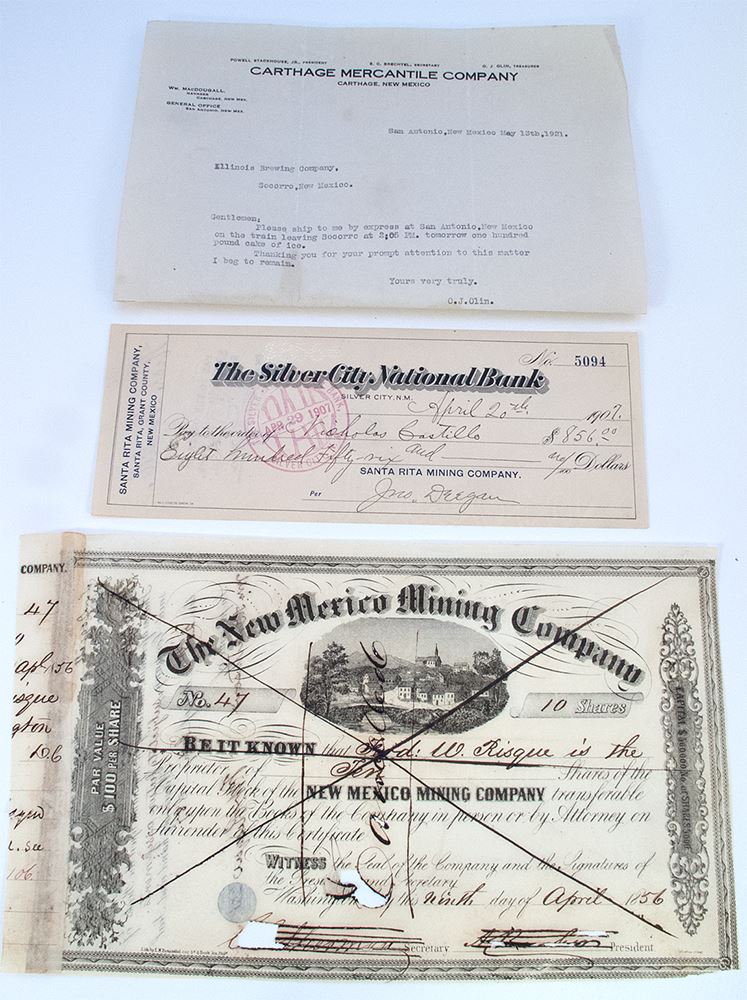 POWELL STACKHOUSE, JR., PRESIDENT E. C. BRECHTEL, SECRETARY O. J. OLIN, TREASURER
CARTHAGE MERCANTILE COMPANY
CARTHAGE, NEW MEXICO
WM. MACDOUGALL,
MANAGER
CARTHAGE, NEW MEX.
GENERAL OFFICE
SAN ANTONIO, NEW MEX.
San Antonio,New Mexico May 13th,1921.
Illinois Brewing Company,
Socorro,New Mexico.
Gentlemen;
Please ship to me by express at San Antonio,New Mexico
on the train leaving Socorro at 2;05 PM. tomorrow one hundred
pound cake of ice.
Thanking you for your prompt attention to this matter
I beg to remain.
Yours very truly.
O.J.Olin.
SANTA RITA MINING COMPANY,
SANTA RITA, GRANT COUNTY,
NEW MEXICO
No. 5094
The Silver City National Bank
SILVER CITY, N.M.
April 20th 1907.
PAID
APR 29 1907
Pay to the order of Nicholas Castillo $856.00
Eight hundred Fifty six and no/100 Dollars
SANTA RITA MINING COMPANY.
Per Jno. Deegan
COMPANY.
47
Apl. '56
isque
gton
106
PAR VALUE
$100 PER SHARE
The New Mexico Mining Company
No. 47 10 Shares
BE IT KNOWN that Ferd: W. Risque is the
Proprietor of Ten Shares of the
Capital Stock of the NEW MEXICO MINING COMPANY transferable
only upon the Books of the Company in person or by Attorney on
Surrender of this Certificate
WITNESS the Seal of the Company and the Signatures of
the President and Secretary
Washington this ninth day of April 1856
Secretary President